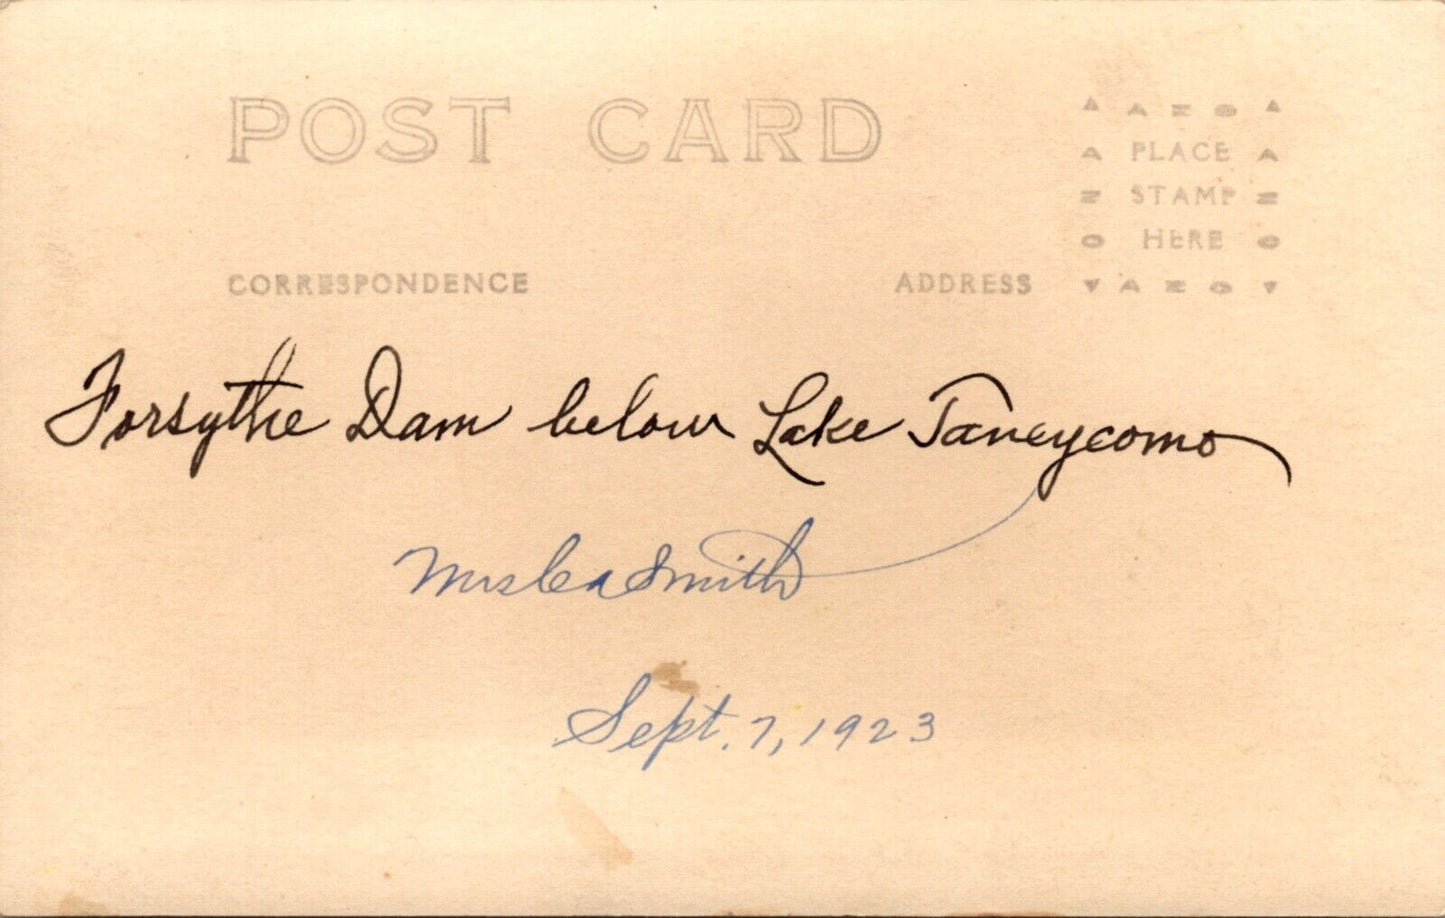 POST CARD
AZO
PLACE
STAMP
HERE
AZO
CORRESPONDENCE
ADDRESS
Forsythe Dam below Lake Taneycomo
Mrs Smith
Sept. 7, 1923